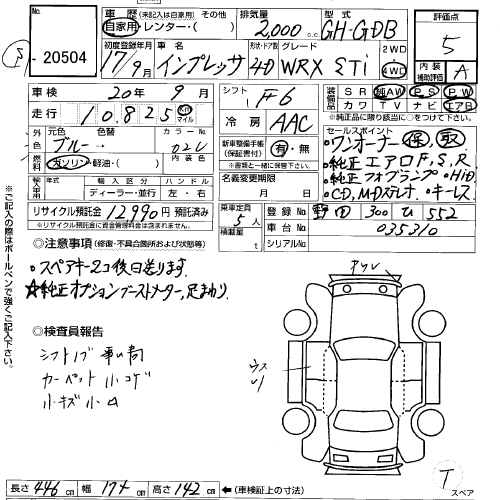 No.
20504
車歴 (未記入は自家用) その他
自家用・レンター・( )
初度登録年月
17年9月
車名
インプレッサ
排気量
2,000 c.c
型式
GH-GDB
形状・ドア数
4D
グレード
WRX STi
2WD
4WD
評価点
5
内装
補助評価
A
車検 20年 9月
走行 10,825 Km マイル
シフト F6
冷房 AAC
装備品
SR 純AW PS PW
カワ TV ナビ エアB
※純正品に限り該当に○をつけて下さい
外色
元色 ブルー→
色替
カラーNo. 02U
内装色
燃料
ガソリン・軽油・( )
新車整備手帳
(保証書付)
有・無
※書類と一緒に保管して下さい。
名義変更期限
月 日
セールスポイント
・ワンオーナー 保、取
・純正エアロF,S,R
・純正フォグランプ ・HID
・CD,MDステレオ ・キーレス
輸入車用
輸入区分 ハンドル
ディーラー・並行 左・右
リサイクル預託金 12990 円 預託済み
※リサイクル預託金に資金管理料金は含まれません。
乗車定員 5人
積載量 t
登録No. 野田 300 ひ 552
車台No. 035310
シリアルNo.
◎注意事項 (修復・不具合箇所および状態等)
・スペアキー2コ後日送ります。
☆純正オプションブーストメーター,足まわり.
◎検査員報告
シフトノブ
カーペット小コゲ
小キズ小凹
※ご記入の際はボールペンで強くご記入下さい。
長さ 446 cm 幅 174 cm 高さ 142 cm ←(車検証上の寸法)
スペア